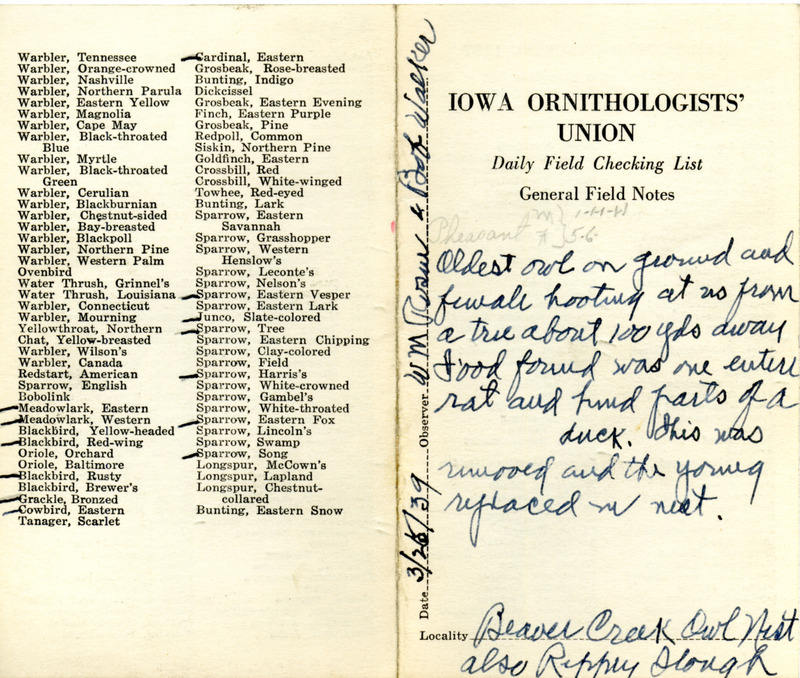 Warbler, Tennessee
Warbler, Orange-crowned
Warbler, Nashville
Warbler, Northern Parula
Warbler, Eastern Yellow
Warbler, Magnolia
Warbler, Cape May
Warbler, Black-throated
Blue
Warbler, Myrtle
Warbler, Black-throated
Green
Warbler, Cerulian
Warbler, Blackburnian
Warbler, Chestnut-sided
Warbler, Bay-breasted
Warbler, Blackpoll
Warbler, Northern Pine
Warbler, Western Palm
Ovenbird
Water Thrush, Grinnel's
Water Thrush, Louisiana
Warbler, Connecticut
Warbler, Mourning
Yellowthroat, Northern
Chat, Yellow-breasted
Warbler, Wilson's
Warbler, Canada
Redstart, American
Sparrow, English
Bobolink
Meadowlark, Eastern
Meadowlark, Western
Blackbird, Yellow-headed
Blackbird, Red-wing
Oriole, Orchard
Oriole, Baltimore
Blackbird, Rusty
Blackbird, Brewer's
Grackle, Bronzed
Cowbird, Eastern
Tanager, Scarlet
Cardinal, Eastern
Grosbeak, Rose-breasted
Bunting, Indigo
Dickcissel
Grosbeak, Eastern Evening
Finch, Eastern Purple
Grosbeak, Pine
Redpoll, Common
Siskin, Northern Pine
Goldfinch, Eastern
Crossbill, Red
Crossbill, White-winged
Towhee, Red-eyed
Bunting, Lark
Sparrow, Eastern
Savannah
Sparrow, Grasshopper
Sparrow, Western
Henslow's
Sparrow, Leconte's
Sparrow, Nelson's
Sparrow, Eastern Vesper
Sparrow, Eastern Lark
Junco, Slate-colored
Sparrow, Tree
Sparrow, Eastern Chipping
Sparrow, Clay-colored
Sparrow, Field
Sparrow, Harris's
Sparrow, White-crowned
Sparrow, Gambel's
Sparrow, White-throated
Sparrow, Eastern Fox
Sparrow, Lincoln's
Sparrow, Swamp
Sparrow, Song
Longspur, McCown's
Longspur, Lapland
Longspur, Chestnut-
collared
Bunting, Eastern Snow
Date 3/25/39 Observer WM Rosene & Bob Walker
IOWA ORNITHOLOGISTS'
UNION
Daily Field Checking List
General Field Notes
Pheasant
5-6-
Oldest owl on ground and
female hooting at us from
a tree about 100 yds away
Food found was one entire
rat and hind parts of a
duck. This was
removed and the young
replaced in nest.
Locality Beaver Creek Owl Nest
also Rippey Slough